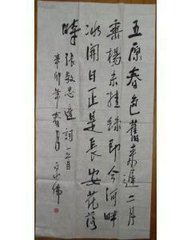 五原春色舊來遲二月
垂楊未挂絲即今河畔
冰開日正是長安花落
時 張敬忠邊詞一首
辛卯年春月